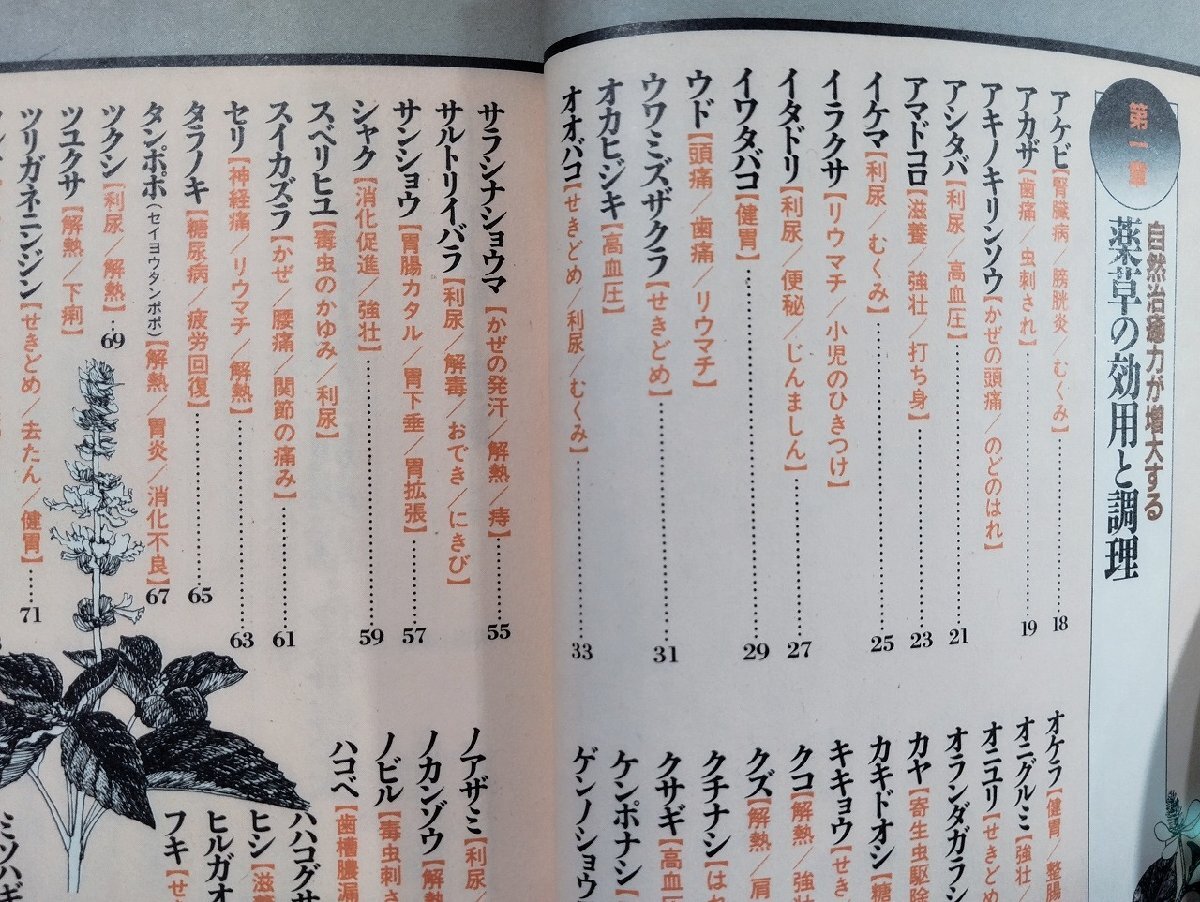 第一章
自然治癒力が増大する
薬草の効用と調理
アケビ【腎臓病/膀胱炎/むくみ】……18
アカザ【歯痛/虫刺され】……19
アキノキリンソウ【かぜの頭痛/のどのはれ】
アシタバ【利尿/高血圧】……21
アマドコロ【滋養/強壮/打ち身】……23
イケマ【利尿/むくみ】……25
イラクサ【リウマチ/小児のひきつけ】
イタドリ【利尿/便秘/じんましん】……27
イワタバコ【健胃】……29
ウド【頭痛/歯痛/リウマチ】
ウワミズザクラ【せきどめ】……31
オカヒジキ【高血圧】
オオバコ【せきどめ/利尿/むくみ】……33
オケラ【健胃/整腸
オニグルミ【強壮/
オニユリ【せきどめ
オランダガラシ
カヤ【寄生虫駆除
カキドオシ【糖
キキョウ【せき
クコ【解熱/強
クズ【解熱/肩
クチナシ【はれ
クサギ【高血
ケンポナシ【
ゲンノショウ
サラシナショウマ【かぜの発汗/解熱/痔】……55
サルトリイバラ【利尿/解毒/おでき/にきび】
サンショウ【胃腸カタル/胃下垂/胃拡張】……57
シャク【消化促進/強壮】……59
スベリヒユ【毒虫のかゆみ/利尿】
スイカズラ【かぜ/腰痛/関節の痛み】……61
セリ【神経痛/リウマチ/解熱】……63
タラノキ【糖尿病/疲労回復】……65
タンポポ(セイヨウタンポポ)【解熱/胃炎/消化不良】67
ツクシ【利尿/解熱】…69
ツユクサ【解熱/下痢】
ツリガネニンジン【せきどめ/去たん/健胃】……71
ノアザミ【利尿/
ノカンゾウ【解熱
ノビル【毒虫刺さ
ハコベ【歯槽膿漏
ハハコグサ
ヒシ【滋養
ヒルガオ
フキ【せき
ミソハギ